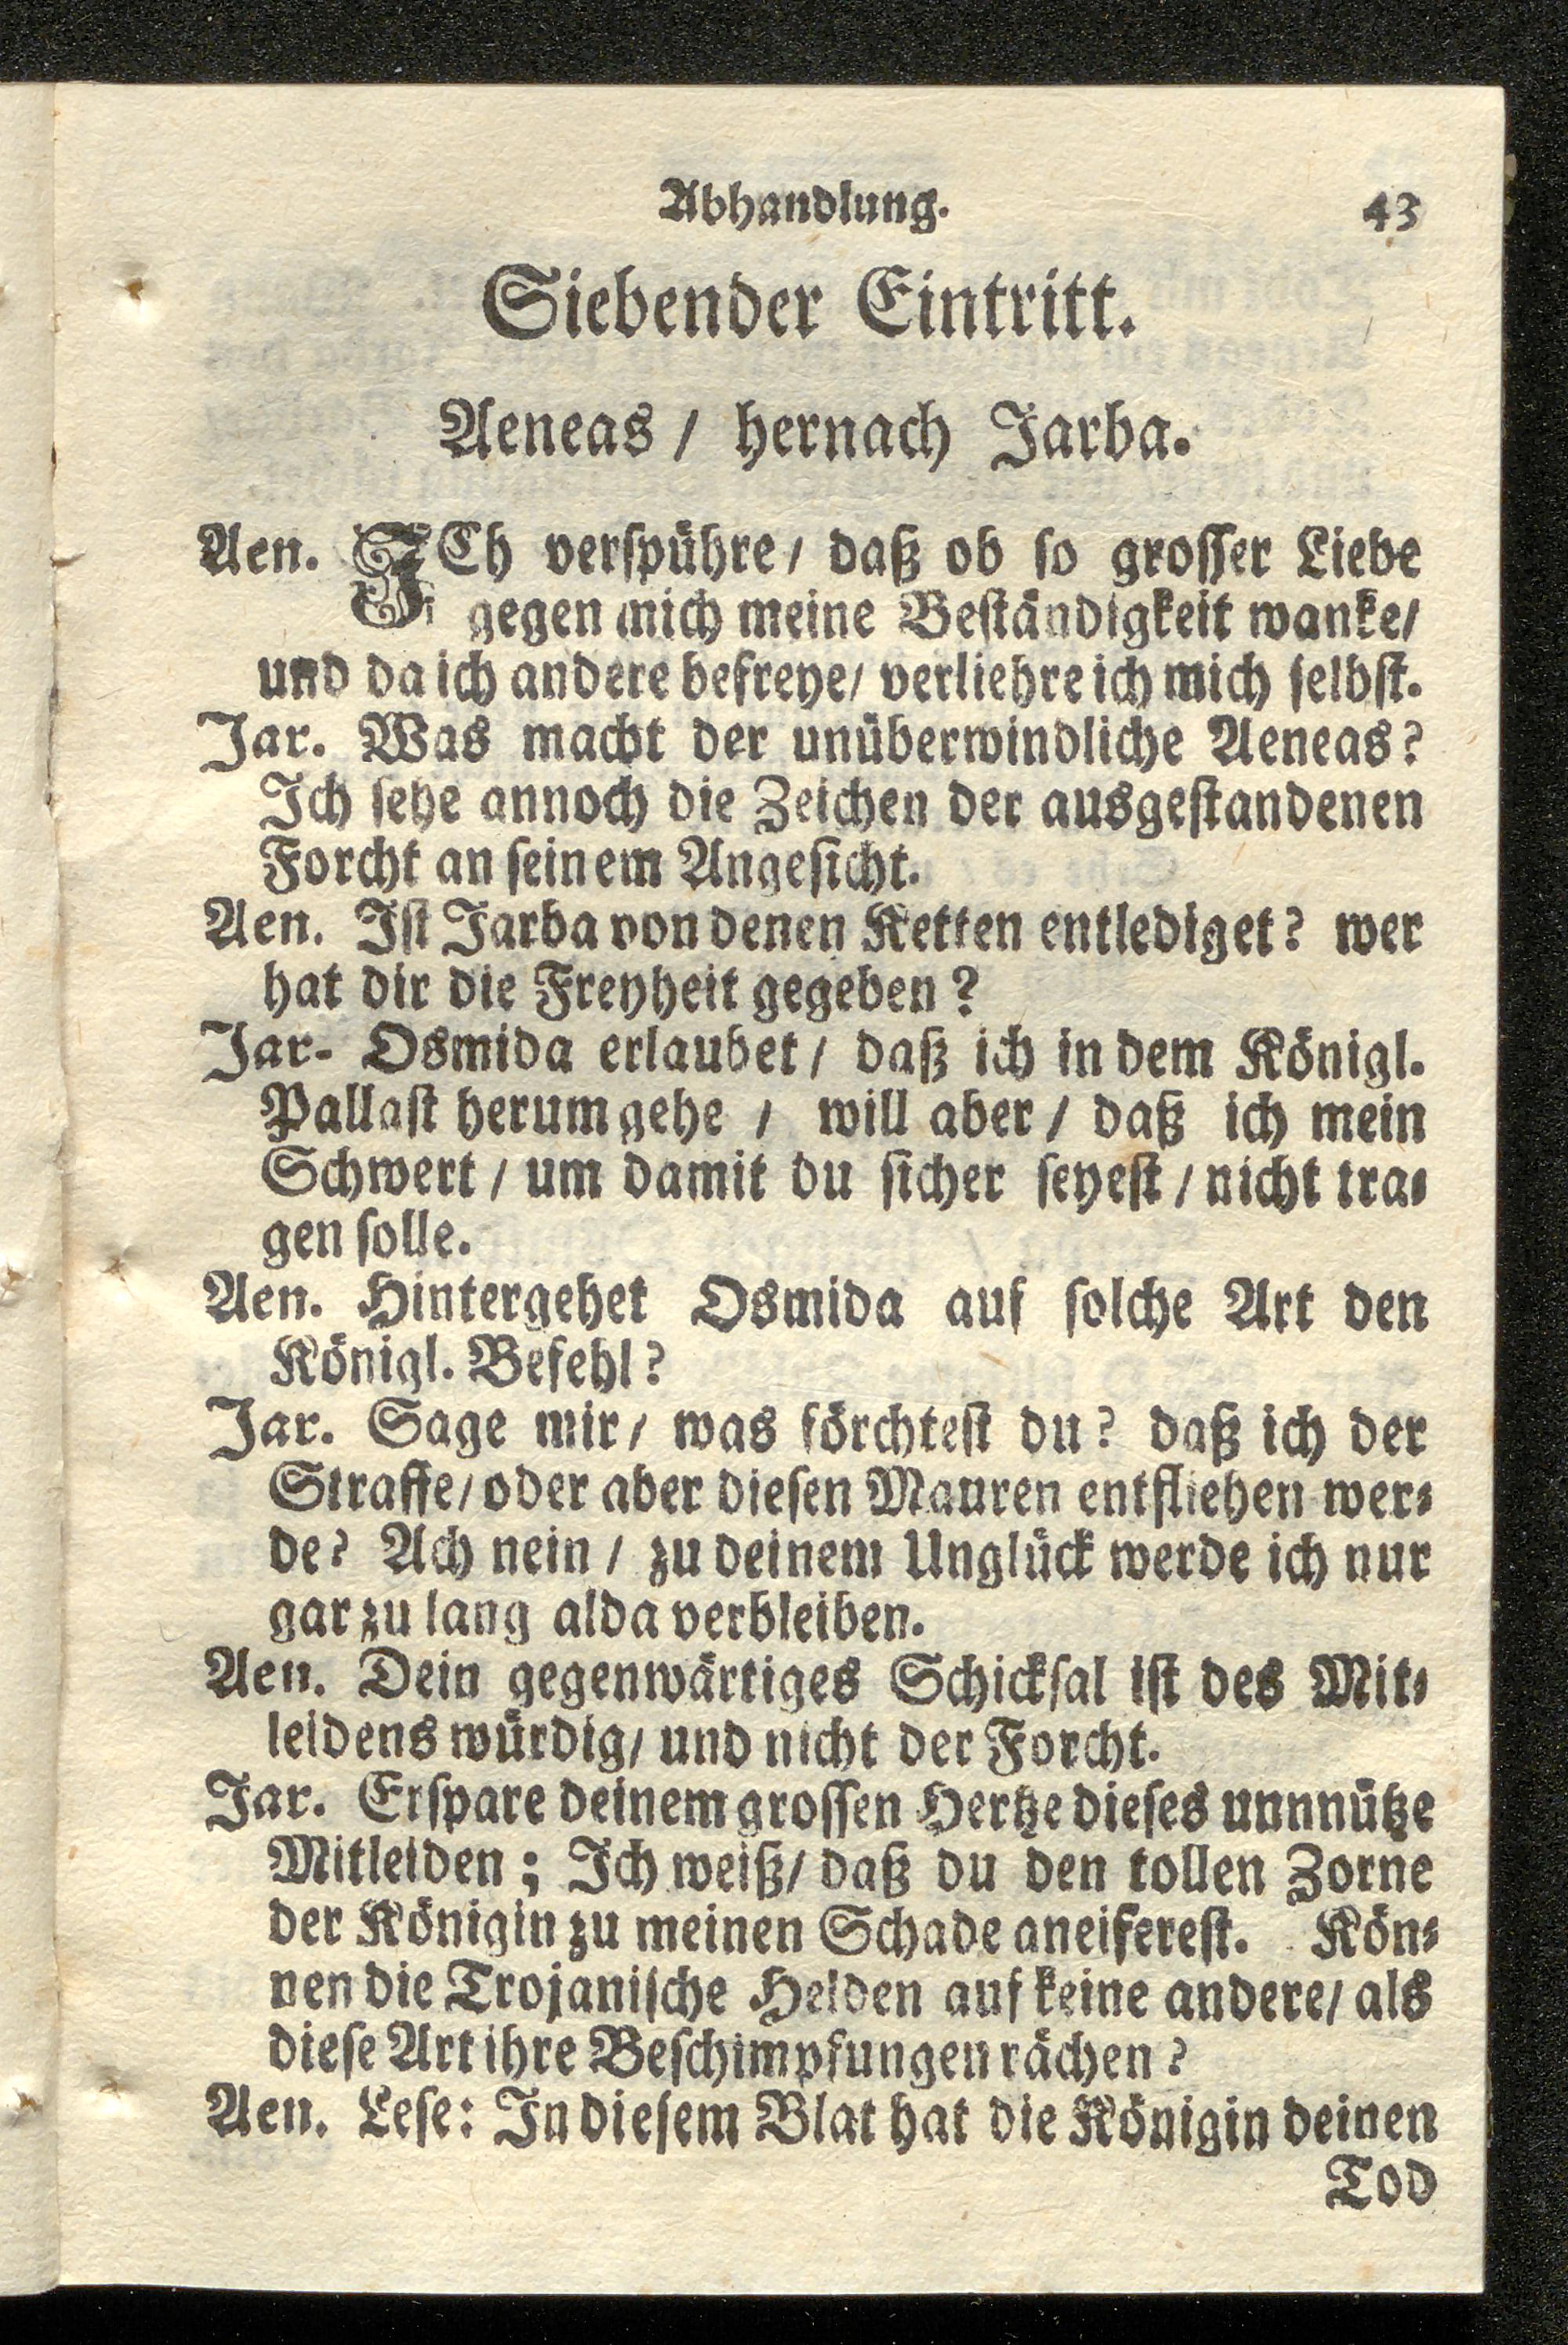 Abhandlung. 43
Siebender Eintritt.
Aeneas / hernach Jarba.
Aen. ICh verspühre / daß ob so grosser Liebe
gegen mich meine Beständigkeit wanke/
und da ich andere befreye/ verliehre ich mich selbst.
Jar. Was macht der unüberwindliche Aeneas?
Ich sehe annoch die Zeichen der ausgestandenen
Forcht an seinem Angesicht.
Aen. Ist Jarba von denen Ketten entlediget? wer
hat dir die Freyheit gegeben?
Jar- Osmida erlaubet / daß ich in dem Königl.
Pallast herum gehe / will aber / daß ich mein
Schwert / um damit du sicher seyest / nicht tra-
gen solle.
Aen. Hintergehet Osmida auf solche Art den
Königl. Befehl?
Jar. Sage mir / was förchtest du? daß ich der
Straffe / oder aber diesen Mauren entfliehen wer-
de? Ach nein / zu deinem Unglück werde ich nur
gar zu lang alda verbleiben.
Aen. Dein gegenwärtiges Schicksal ist des Mit-
leidens würdig/ und nicht der Forcht.
Jar. Erspare deinem grossen Hertze dieses unnnütze
Mitleiden; Ich weiß/ daß du den tollen Zorne
der Königin zu meinen Schade aneiferest. Kön-
nen die Trojanische Helden auf keine andere/ als
diese Art ihre Beschimpfungen rächen?
Aen. Lese: In diesem Blat hat die Königin deinen
Tod